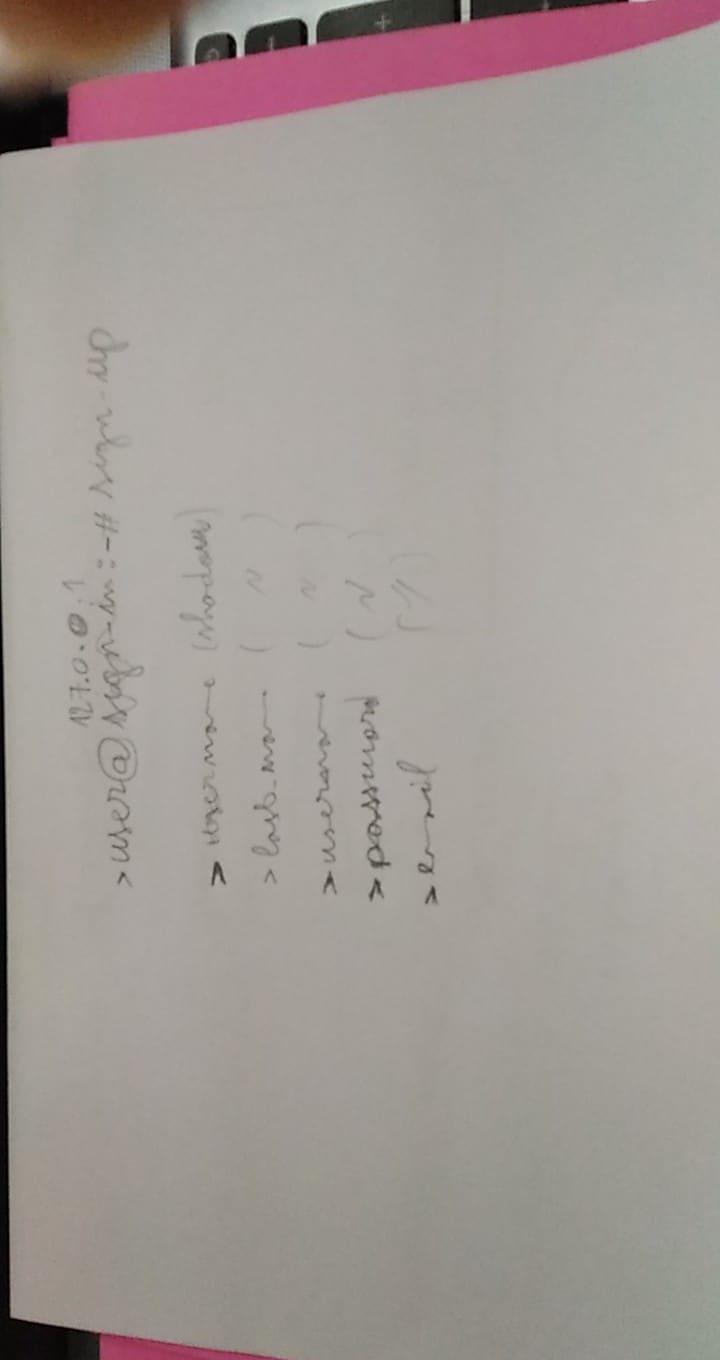 127.0.0.1
>user@sign-in:~# sign-up
> username (shadow)
> last_name ( " )
> username ( " )
> password ( " )
> email ( " )